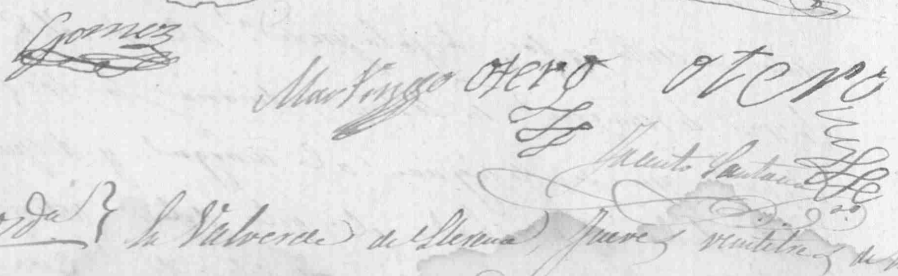 Gomez
Martin otero otero
Jacinto Santana
En Valverde de Llerena, Jueves veintitres de